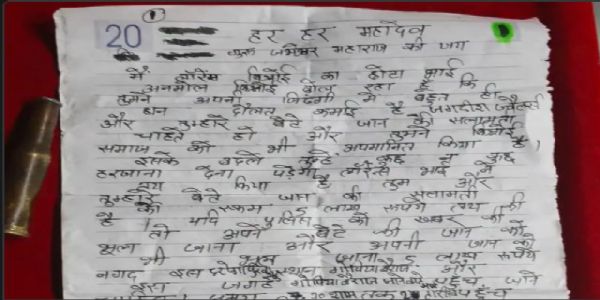 ① 
20 हर हर महादेव
गुरु जम्भेश्वर महाराज की जय
में लोरेंस बिश्नोई का छोटा भाई
अनमोल बिश्नोई बोल रहा है कि
तुमने अपनी जिंदगी में बहुत ही
धन दौलत कमाई है
और तुम्हारे बेटे जान की सलामती
चाहते हो और तुमने बिश्नोई
समाज को भी अपमानित किया है।
इसके बदले तुम्हे कुछ न कुछ
हरजाना देना पड़ेगा लॉरेन्स भाई ने
तय किया है तुम और
तुम्हारे बेटे जान की सलामती
की रकम 5 लाख रूपये तय की
है। यदि पुलिस को खबर की
तो अपने बेटे की जान को
भूल जाना और अपनी जान को
भी भूल जाना 5 लाख रूपये
नगद इस और
इस जगह पहुंच जाने